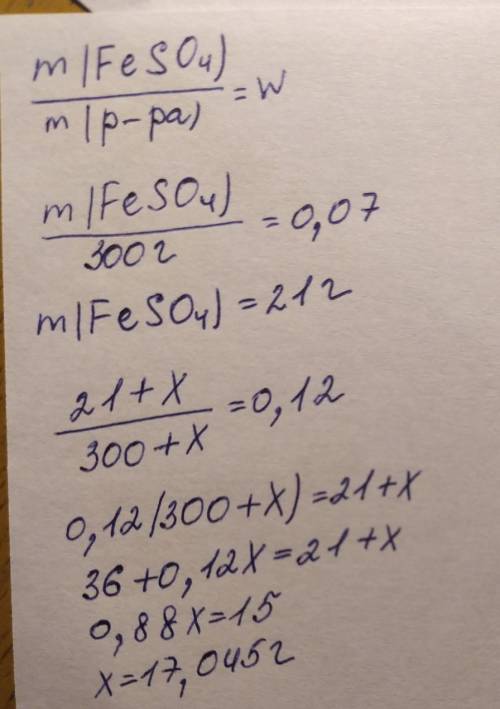 m(FeSO₄)
m(р-ра) = W
m(FeSO₄)
300г = 0,07
m(FeSO₄) = 21г
21+x
300+x = 0,12
0,12(300+x) = 21+x
36+0,12x = 21+x
0,88x = 15
x = 17,045г